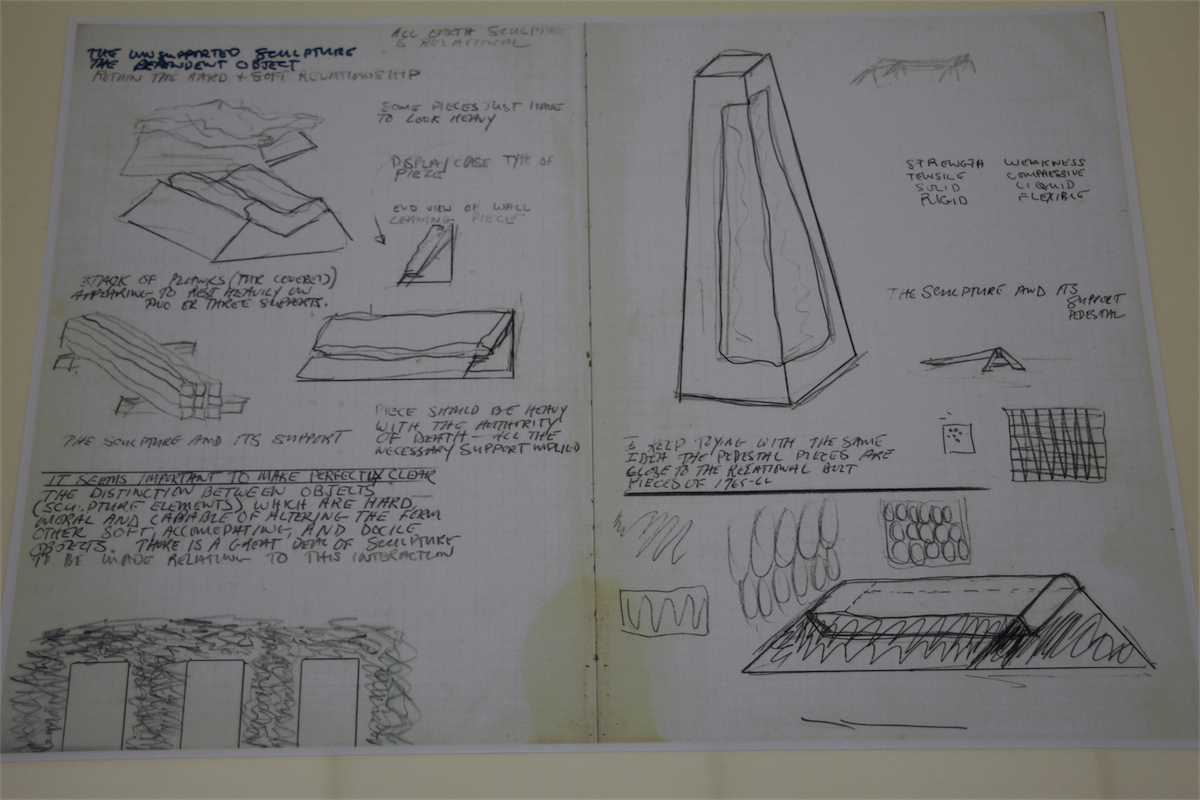 ALL EARTH SCULPTURE
IS RELATIONAL
THE UNSUPPORTED SCULPTURE
THE DEPENDENT OBJECT
RETAIN THE HARD + SOFT RELATIONSHIP
SOME PIECES JUST HAVE
TO LOOK HEAVY
DISPLAY CASE TYPE OF
PIECE
END VIEW OF WALL
LEANING PIECE
STACK OF PLANKS (TAR COVERED)
APPEARING TO REST HEAVILY ON
TWO OR THREE SUPPORTS.
PIECE SHOULD BE HEAVY
WITH THE AUTHORITY
OF DEATH – ALL THE
NECESSARY SUPPORT IMPLIED
THE SCULPTURE AND ITS SUPPORT
IT SEEMS IMPORTANT TO MAKE PERFECTLY CLEAR
THE DISTINCTION BETWEEN OBJECTS
(SCULPTURE ELEMENTS) WHICH ARE HARD,
MORAL AND CABIABLE OF ALTERING THE FORM
OTHER SOFT, ACCOMODATING, AND DOCILE
OBJECTS. THERE IS A GREAT DEAL OF SCULPTURE
TO BE MADE RELATING TO THIS INTERACTION
STRENGTH WEAKNESS
TENSILE COMPRESSIVE
SOLID LIQUID
RIGID FLEXIBLE
THE SCULPTURE AND ITS
SUPPORT
PEDESTAL
I KEEP TOYING WITH THE SAME
IDEA THE PEDESTAL PIECES ARE
CLOSE TO THE RELATIONAL BUTT
PIECES OF 1965-66